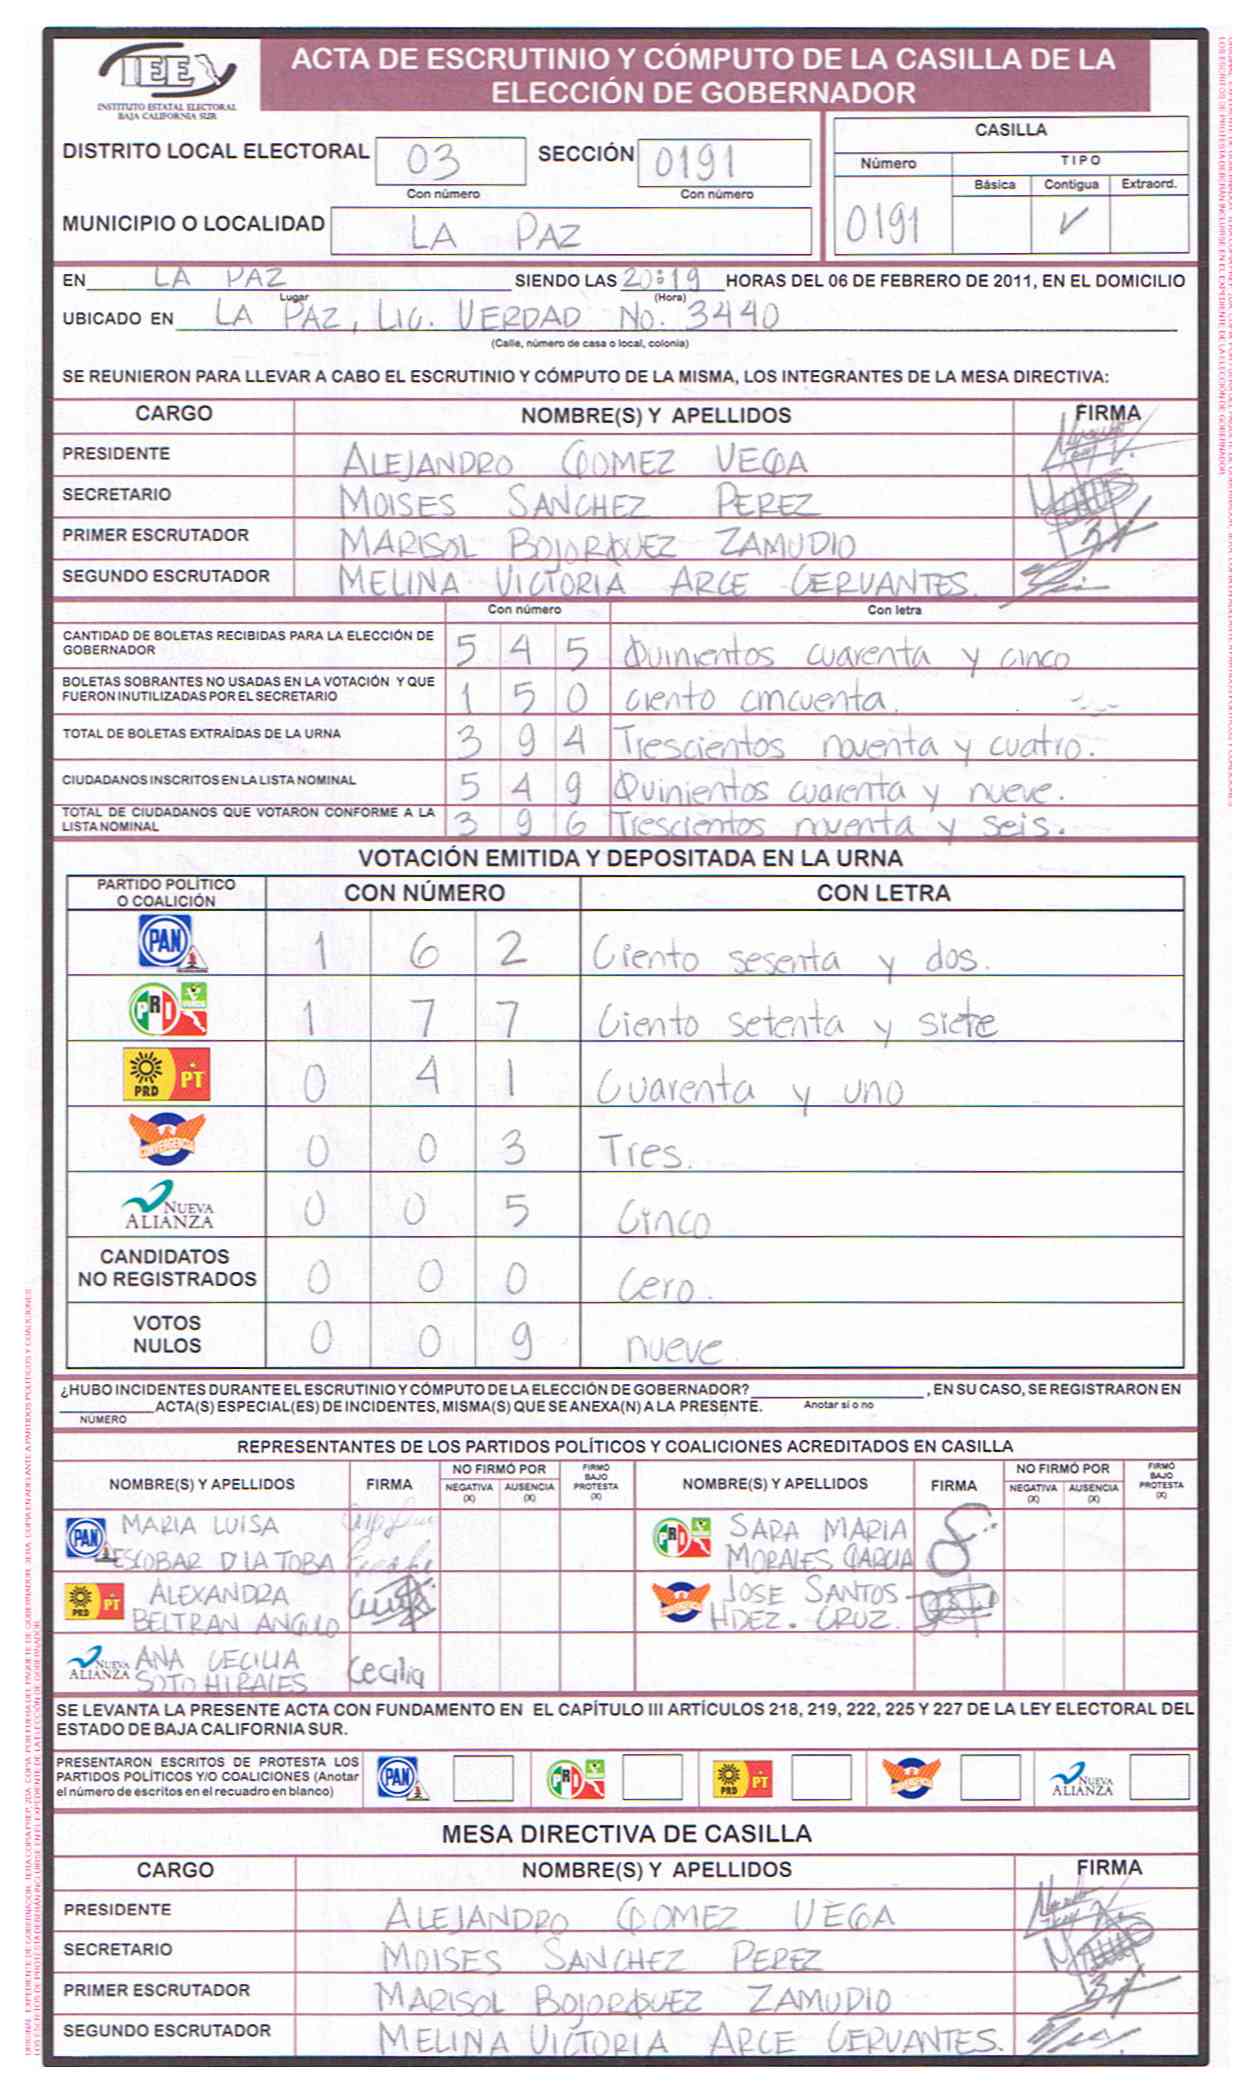 IEE
INSTITUTO ESTATAL ELECTORAL
BAJA CALIFORNIA SUR
ACTA DE ESCRUTINIO Y CÓMPUTO DE LA CASILLA DE LA
ELECCIÓN DE GOBERNADOR
DISTRITO LOCAL ELECTORAL 03 SECCIÓN 0191
Con número Con número
MUNICIPIO O LOCALIDAD LA PAZ
CASILLA
Número TIPO
Básica Contigua Extraord.
0191 ✓
EN LA PAZ SIENDO LAS 20:19 HORAS DEL 06 DE FEBRERO DE 2011, EN EL DOMICILIO
Lugar (Hora)
UBICADO EN LA PAZ, LIC. VERDAD No. 3440
(Calle, número de casa o local, colonia)
SE REUNIERON PARA LLEVAR A CABO EL ESCRUTINIO Y CÓMPUTO DE LA MISMA, LOS INTEGRANTES DE LA MESA DIRECTIVA:
CARGO NOMBRE(S) Y APELLIDOS FIRMA
PRESIDENTE ALEJANDRO GOMEZ VEGA
SECRETARIO MOISES SANCHEZ PEREZ
PRIMER ESCRUTADOR MARISOL BOJORQUEZ ZAMUDIO
SEGUNDO ESCRUTADOR MELINA VICTORIA ARCE CERVANTES.
Con número Con letra
CANTIDAD DE BOLETAS RECIBIDAS PARA LA ELECCIÓN DE
GOBERNADOR 5 4 5 Quinientos cuarenta y cinco
BOLETAS SOBRANTES NO USADAS EN LA VOTACIÓN Y QUE
FUERON INUTILIZADAS POR EL SECRETARIO 1 5 0 ciento cincuenta.
TOTAL DE BOLETAS EXTRAÍDAS DE LA URNA 3 9 4 Trescientos noventa y cuatro.
CIUDADANOS INSCRITOS EN LA LISTA NOMINAL 5 4 9 Quinientos cuarenta y nueve.
TOTAL DE CIUDADANOS QUE VOTARON CONFORME A LA
LISTA NOMINAL 3 9 6 Trescientos noventa y seis.
VOTACIÓN EMITIDA Y DEPOSITADA EN LA URNA
PARTIDO POLÍTICO
O COALICIÓN CON NÚMERO CON LETRA
PAN 1 6 2 Ciento sesenta y dos.
PRI 1 7 7 Ciento setenta y siete
PRD PT 0 4 1 Cuarenta y uno
CONVERGENCIA 0 0 3 Tres.
NUEVA
ALIANZA 0 0 5 Cinco
CANDIDATOS
NO REGISTRADOS 0 0 0 Cero.
VOTOS
NULOS 0 0 9 nueve
¿HUBO INCIDENTES DURANTE EL ESCRUTINIO Y CÓMPUTO DE LA ELECCIÓN DE GOBERNADOR? , EN SU CASO, SE REGISTRARON EN
ACTA(S) ESPECIAL(ES) DE INCIDENTES, MISMA(S) QUE SE ANEXA(N) A LA PRESENTE. Anotar si o no
NÚMERO
REPRESENTANTES DE LOS PARTIDOS POLÍTICOS Y COALICIONES ACREDITADOS EN CASILLA
NOMBRE(S) Y APELLIDOS FIRMA NO FIRMÓ POR NEGATIVA (X) AUSENCIA (X) FIRMÓ BAJO PROTESTA (X) NOMBRE(S) Y APELLIDOS FIRMA NO FIRMÓ POR NEGATIVA (X) AUSENCIA (X) FIRMÓ BAJO PROTESTA (X)
PAN MARIA LUISA
ESCOBAR D LA TOBA
PRI SARA MARIA
MORALES GARCIA
PRD PT ALEXANDRA
BELTRAN ANGULO
CONVERGENCIA JOSE SANTOS
HDEZ. CRUZ.
NUEVA ALIANZA ANA CECILIA
SOTO HIRALES Cecilia
SE LEVANTA LA PRESENTE ACTA CON FUNDAMENTO EN EL CAPÍTULO III ARTÍCULOS 218, 219, 222, 225 Y 227 DE LA LEY ELECTORAL DEL
ESTADO DE BAJA CALIFORNIA SUR.
PRESENTARON ESCRITOS DE PROTESTA LOS
PARTIDOS POLÍTICOS Y/O COALICIONES (Anotar
el número de escritos en el recuadro en blanco)
PAN PRI PRD PT CONVERGENCIA NUEVA ALIANZA
MESA DIRECTIVA DE CASILLA
CARGO NOMBRE(S) Y APELLIDOS FIRMA
PRESIDENTE ALEJANDRO GOMEZ VEGA
SECRETARIO MOISES SANCHEZ PEREZ
PRIMER ESCRUTADOR MARISOL BOJORQUEZ ZAMUDIO
SEGUNDO ESCRUTADOR MELINA VICTORIA ARCE CERVANTES.